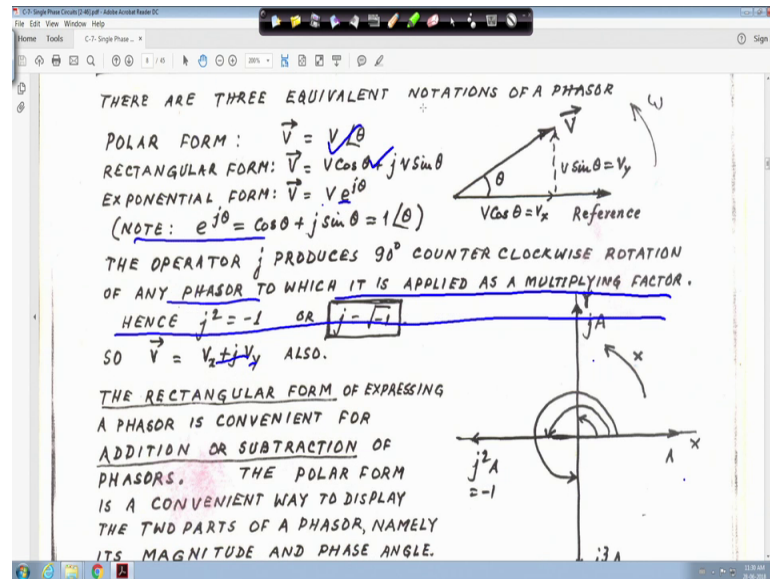 C-7- Single Phase Circuits [2-46].pdf - Adobe Acrobat Reader DC
File Edit View Window Help
Home Tools C-7- Single Phase ... × Sign
8 / 45 200%
THERE ARE THREE EQUIVALENT NOTATIONS OF A PHASOR
POLAR FORM: V⃗ = V∠θ
RECTANGULAR FORM: V⃗ = V Cos θ + j V Sin θ
EXPONENTIAL FORM: V⃗ = V e^{jθ}
(NOTE: e^{jθ} = Cos θ + j Sin θ = 1∠θ)
V⃗
ω
θ
V Sin θ = Vy
V Cos θ = Vx Reference
THE OPERATOR j PRODUCES 90° COUNTER CLOCKWISE ROTATION
OF ANY PHASOR TO WHICH IT IS APPLIED AS A MULTIPLYING FACTOR.
HENCE j² = -1 OR j = √-1
SO V⃗ = Vx + j Vy ALSO.
THE RECTANGULAR FORM OF EXPRESSING
A PHASOR IS CONVENIENT FOR
ADDITION OR SUBTRACTION OF
PHASORS. THE POLAR FORM
IS A CONVENIENT WAY TO DISPLAY
THE TWO PARTS OF A PHASOR, NAMELY
ITS MAGNITUDE AND PHASE ANGLE.
Y
jA
x
X
A
j²A
= -1
j3A
11:30 AM